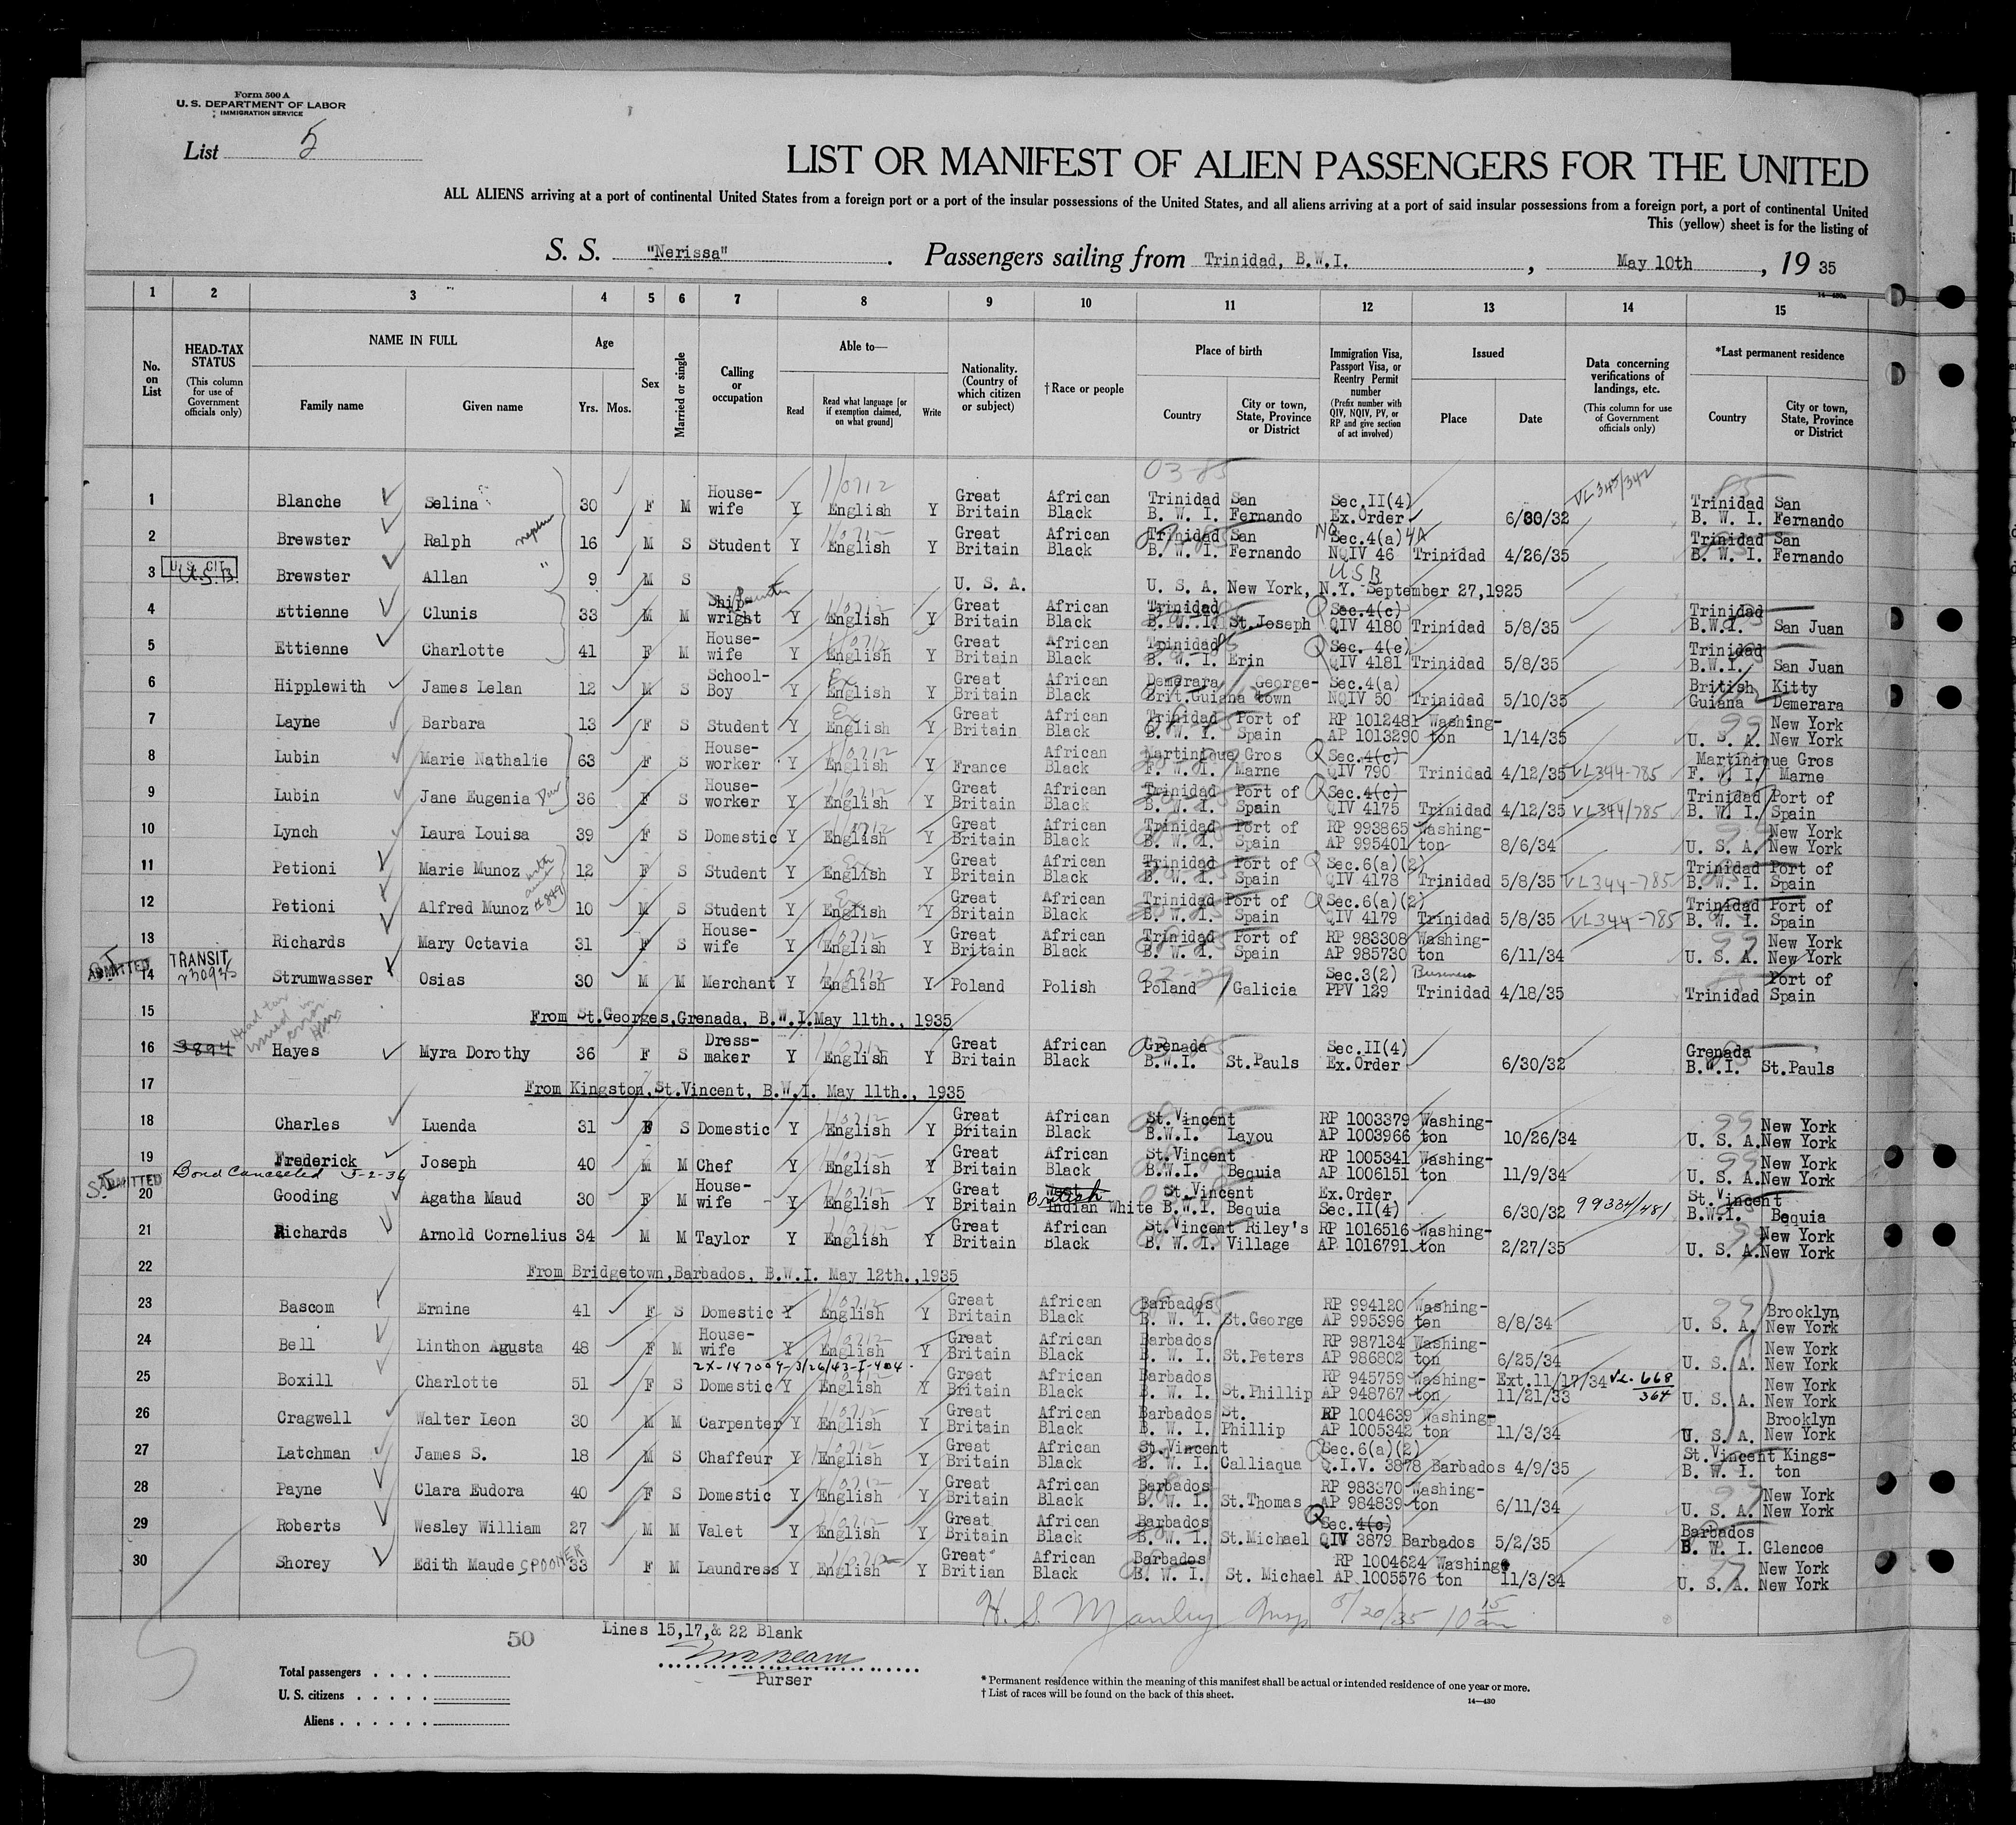 Form 500 A
U. S. DEPARTMENT OF LABOR
IMMIGRATION SERVICE
List 5
LIST OR MANIFEST OF ALIEN PASSENGERS FOR THE UNITED
ALL ALIENS arriving at a port of continental United States from a foreign port or a port of the insular possessions of the United States, and all aliens arriving at a port of said insular possessions from a foreign port, a port of continental United
This (yellow) sheet is for the listing of
S. S. "Nerissa" . Passengers sailing from Trinidad, B.W.I. , May 10th , 19 35
14—430a
1 2 3 4 5 6 7 8 9 10 11 12 13 14 15
No. on List
HEAD-TAX STATUS (This column for use of Government officials only)
NAME IN FULL
Family name Given name
Age Yrs. Mos.
Sex
Married or single
Calling or occupation
Able to—
Read Read what language [or if exemption claimed, on what ground] Write
Nationality. (Country of which citizen or subject)
† Race or people
Place of birth
Country City or town, State, Province or District
Immigration Visa, Passport Visa, or Reentry Permit number (Prefix number with QIV, NQIV, PV, or RP and give section of act involved)
Issued
Place Date
Data concerning verifications of landings, etc. (This column for use of Government officials only)
*Last permanent residence
Country City or town, State, Province or District
03-85
1 Blanche Selina 30 F M House-wife Y English Y Great Britain African Black Trinidad B. W. I. San Fernando Sec.II(4) Ex.Order 6/30/32 VL343/342 Trinidad B. W. I. San Fernando
2 Brewster Ralph nephew 16 M S Student Y English Y Great Britain African Black Trinidad B. W. I. San Fernando Sec.4(a) 4A NQIV 46 Trinidad 4/26/35 Trinidad B. W. I. San Fernando
U.S. CIT.
U.S.B.
3 Brewster Allan " 9 M S U. S. A. U. S. A. New York, N.Y. September 27,1925 USB
4 Ettienne Clunis 33 M M Ship-wright Painter Y English Y Great Britain African Black Trinidad B. W. I. St.Joseph Sec.4(c) QIV 4180 Trinidad 5/8/35 Trinidad B.W.I. San Juan
5 Ettienne Charlotte 41 F M House-wife Y English Y Great Britain African Black Trinidad B. W. I. Erin Sec. 4(c) QIV 4181 Trinidad 5/8/35 Trinidad B.W.I. San Juan
6 Hipplewith James Lelan 12 M S School-Boy Y English Y Great Britain African Black Demerara Brit.Guiana George-town Sec.4(a) NQIV 50 Trinidad 5/10/35 British Guiana Kitty Demerara
7 Layne Barbara 13 F S Student Y English Y Great Britain African Black Trinidad B. W. I. Port of Spain RP 1012481 AP 1013290 Washing-ton 1/14/35 U. S. A. New York New York
8 Lubin Marie Nathalie 63 F S House-worker Y English Y France African Black Martinique F. W. I. Gros Marne Sec.4(c) QIV 790 Trinidad 4/12/35 VL344-785 Martinique F. W. I. Gros Marne
9 Lubin Jane Eugenia 36 F S House-worker Y English Y Great Britain African Black Trinidad B. W. I. Port of Spain Sec.4(c) QIV 4175 Trinidad 4/12/35 VL344/785 Trinidad B. W. I. Port of Spain
10 Lynch Laura Louisa 39 F S Domestic Y English Y Great Britain African Black Trinidad B. W. I. Port of Spain RP 993865 AP 995401 Washing-ton 8/6/34 U. S. A. New York New York
11 Petioni Marie Munoz 12 F S Student Y English Y Great Britain African Black Trinidad B. W. I. Port of Spain Sec.6(a)(2) QIV 4178 Trinidad 5/8/35 VL344-785 Trinidad B. W. I. Port of Spain
12 Petioni Alfred Munoz 10 M S Student Y English Y Great Britain African Black Trinidad B. W. I. Port of Spain Sec.6(a)(2) QIV 4179 Trinidad 5/8/35 VL344-785 Trinidad B. W. I. Port of Spain
13 Richards Mary Octavia 31 F S House-wife Y English Y Great Britain African Black Trinidad B. W. I. Port of Spain RP 983308 AP 985730 Washing-ton 6/11/34 U. S. A. New York New York
ADMITTED TRANSIT
14 Strumwasser Osias 30 M M Merchant Y English Y Poland Polish Poland Galicia Sec.3(2) Business PPV 129 Trinidad 4/18/35 Trinidad Port of Spain
15 From St.Georges,Grenada, B.W.I.May 11th., 1935
Head tax issued in error
16 3894 Hayes Myra Dorothy 36 F S Dress-maker Y English Y Great Britain African Black Grenada B.W.I. St.Pauls Sec.II(4) Ex.Order 6/30/32 Grenada B.W.I. St.Pauls
17 From Kingston,St.Vincent, B.W.I. May 11th., 1935
18 Charles Luenda 31 F S Domestic Y English Y Great Britain African Black St.Vincent B.W.I. Layou RP 1003379 AP 1003966 Washing-ton 10/26/34 U. S. A. New York New York
19 Frederick Joseph 40 M M Chef Y English Y Great Britain African Black St.Vincent B.W.I. Bequia RP 1005341 AP 1006151 Washing-ton 11/9/34 U. S. A. New York New York
ADMITTED Bond Cancelled 5-2-36
20 Gooding Agatha Maud 30 F M House-wife Y English Y Great Britain British West Indian White St.Vincent B.W.I. Bequia Ex.Order Sec.II(4) 6/30/32 99334/481 St.Vincent B.W.I. Bequia
21 Richards Arnold Cornelius 34 M M Taylor Y English Y Great Britain African Black St.Vincent B. W. I. Riley's Village RP 1016516 AP 1016791 Washing-ton 2/27/35 U. S. A. New York New York
22 From Bridgetown,Barbados, B.W.I. May 12th.,1935
23 Bascom Ernine 41 F S Domestic Y English Y Great Britain African Black Barbados B. W. I. St.George RP 994120 AP 995396 Washing-ton 8/8/34 U. S. A. Brooklyn, New York
24 Bell Linthon Agusta 48 F M House-wife Y English Y Great Britain African Black Barbados B. W. I. St.Peters RP 987134 AP 986802 Washing-ton 6/25/34 U. S. A. New York New York
2X-147009-3/26/43-I-404.
25 Boxill Charlotte 51 F S Domestic Y English Y Great Britain African Black Barbados B. W. I. St.Phillip RP 945759 AP 948767 Washing-ton Ext.11/17/34 11/21/33 VL. 668/364 U. S. A. New York New York
26 Cragwell Walter Leon 30 M M Carpenter Y English Y Great Britain African Black Barbados B. W. I. St. Phillip RP 1004639 AP 1005342 Washing-ton 11/3/34 U. S. A. Brooklyn New York
27 Latchman James S. 18 M S Chaffeur Y English Y Great Britain African Black St.Vincent B. W. I. Calliaqua Sec.6(a)(2) Q.I.V. 3878 Barbados 4/9/35 St.Vincent B. W. I. Kings-ton
28 Payne Clara Eudora 40 F S Domestic Y English Y Great Britain African Black Barbados B. W. I. St.Thomas RP 983370 AP 984839 Washing-ton 6/11/34 U. S. A. New York New York
29 Roberts Wesley William 27 M M Valet Y English Y Great Britain African Black Barbados B. W. I. St.Michael Sec.4(c) QIV 3879 Barbados 5/2/35 Barbados B. W. I. Glencoe
30 Shorey Edith Maude SPOONER 33 F M Laundress Y English Y Great Britian African Black Barbados B. W. I. St. Michael RP 1004624 AP 1005576 Washing-ton 11/3/34 U. S. A. New York New York
H. S. Manley Insp 5/20/35 10 15 am
50
Lines 15,17,& 22 Blank
Purser
Total passengers . . . .
U. S. citizens . . . . .
Aliens . . . . . .
* Permanent residence within the meaning of this manifest shall be actual or intended residence of one year or more.
† List of races will be found on the back of this sheet.
14—430